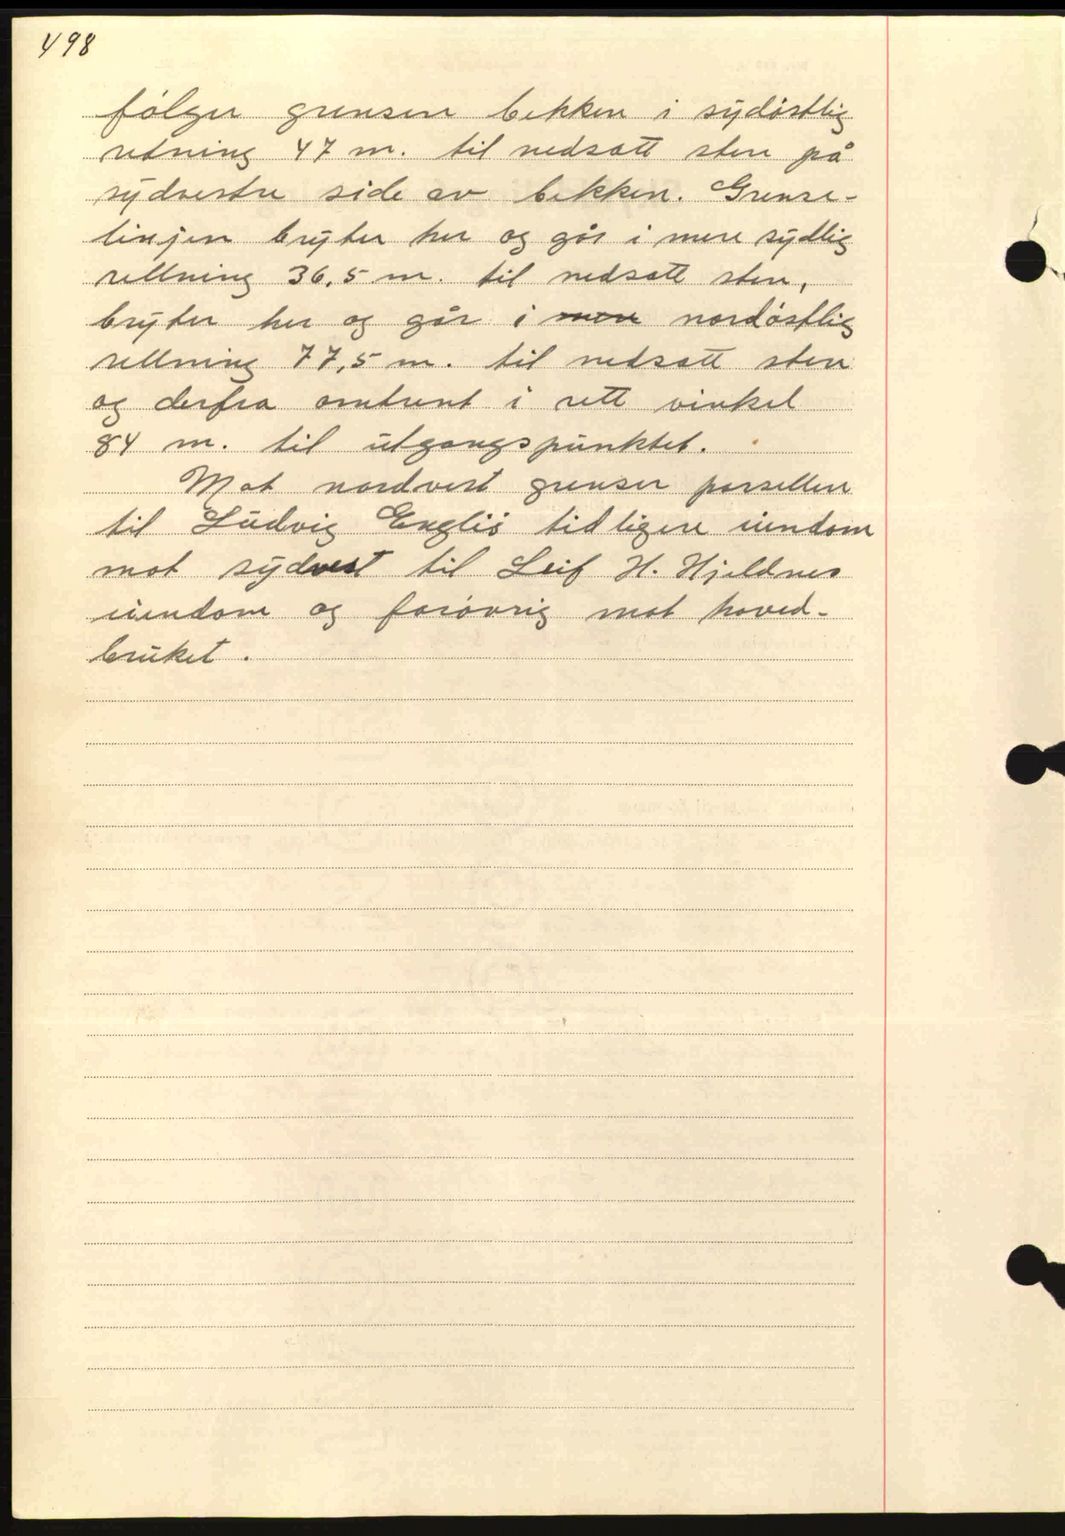 498
følger grensen bekken i sydøstlig
retning 47 m. til nedsatt sten på
sydvestre side av bekken. Grense-
linjen bryter her og går i mere sydlig
rettning 36,5 m. til nedsatt sten,
bryter her og går i mere nordøstlig
rettning 77,5 m. til nedsatt sten
og derfra omtrent i rett vinkel
84 m. til utgangspunktet.
Mot nordvest grenser parsellen
til Ludvig tidligere eiendom
mot sydvest til Leif H. Hjeldnes
eiendom og forøvrig mot hoved-
bruket.